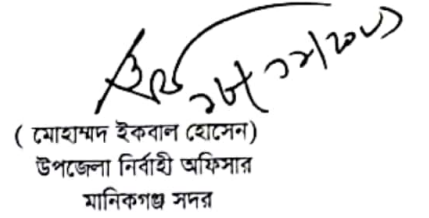 ( মোহাম্মদ ইকবাল হোসেন)
উপজেলা নির্বাহী অফিসার
মানিকগঞ্জ সদর